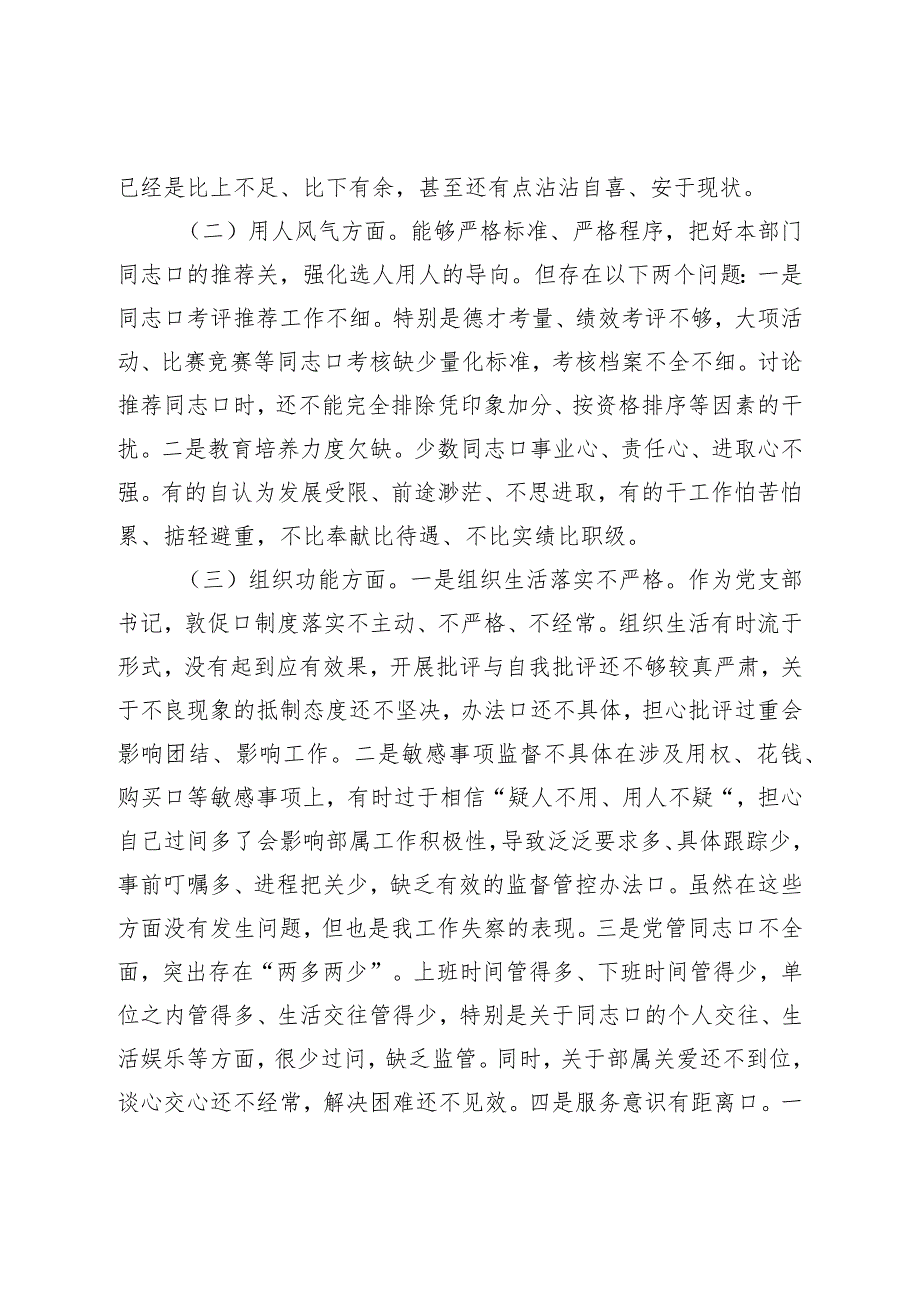 已经是比上不足、比下有余，甚至还有点沾沾自喜、安于现状。
（二）用人风气方面。能够严格标准、严格程序，把好本部门
同志口的推荐关，强化选人用人的导向。但存在以下两个问题：一是
同志口考评推荐工作不细。特别是德才考量、绩效考评不够，大项活
动、比赛竞赛等同志口考核缺少量化标准，考核档案不全不细。讨论
推荐同志口时，还不能完全排除凭印象加分、按资格排序等因素的干
扰。二是教育培养力度欠缺。少数同志口事业心、责任心、进取心不
强。有的自认为发展受限、前途渺茫、不思进取，有的干工作怕苦怕
累、掂轻避重，不比奉献比待遇、不比实绩比职级。
（三）组织功能方面。一是组织生活落实不严格。作为党支部
书记，敦促口制度落实不主动、不严格、不经常。组织生活有时流于
形式，没有起到应有效果，开展批评与自我批评还不够较真严肃，关
于不良现象的抵制态度还不坚决，办法口还不具体，担心批评过重会
影响团结、影响工作。二是敏感事项监督不具体在涉及用权、花钱、
购买口等敏感事项上，有时过于相信“疑人不用、用人不疑“，担心
自己过间多了会影响部属工作积极性，导致泛泛要求多、具体跟踪少，
事前叮嘱多、进程把关少，缺乏有效的监督管控办法口。虽然在这些
方面没有发生问题，但也是我工作失察的表现。三是党管同志口不全
面，突出存在“两多两少”。上班时间管得多、下班时间管得少，单
位之内管得多、生活交往管得少，特别是关于同志口的个人交往、生
活娱乐等方面，很少过问，缺乏监管。同时，关于部属关爱还不到位，
谈心交心还不经常，解决困难还不见效。四是服务意识有距离口。一